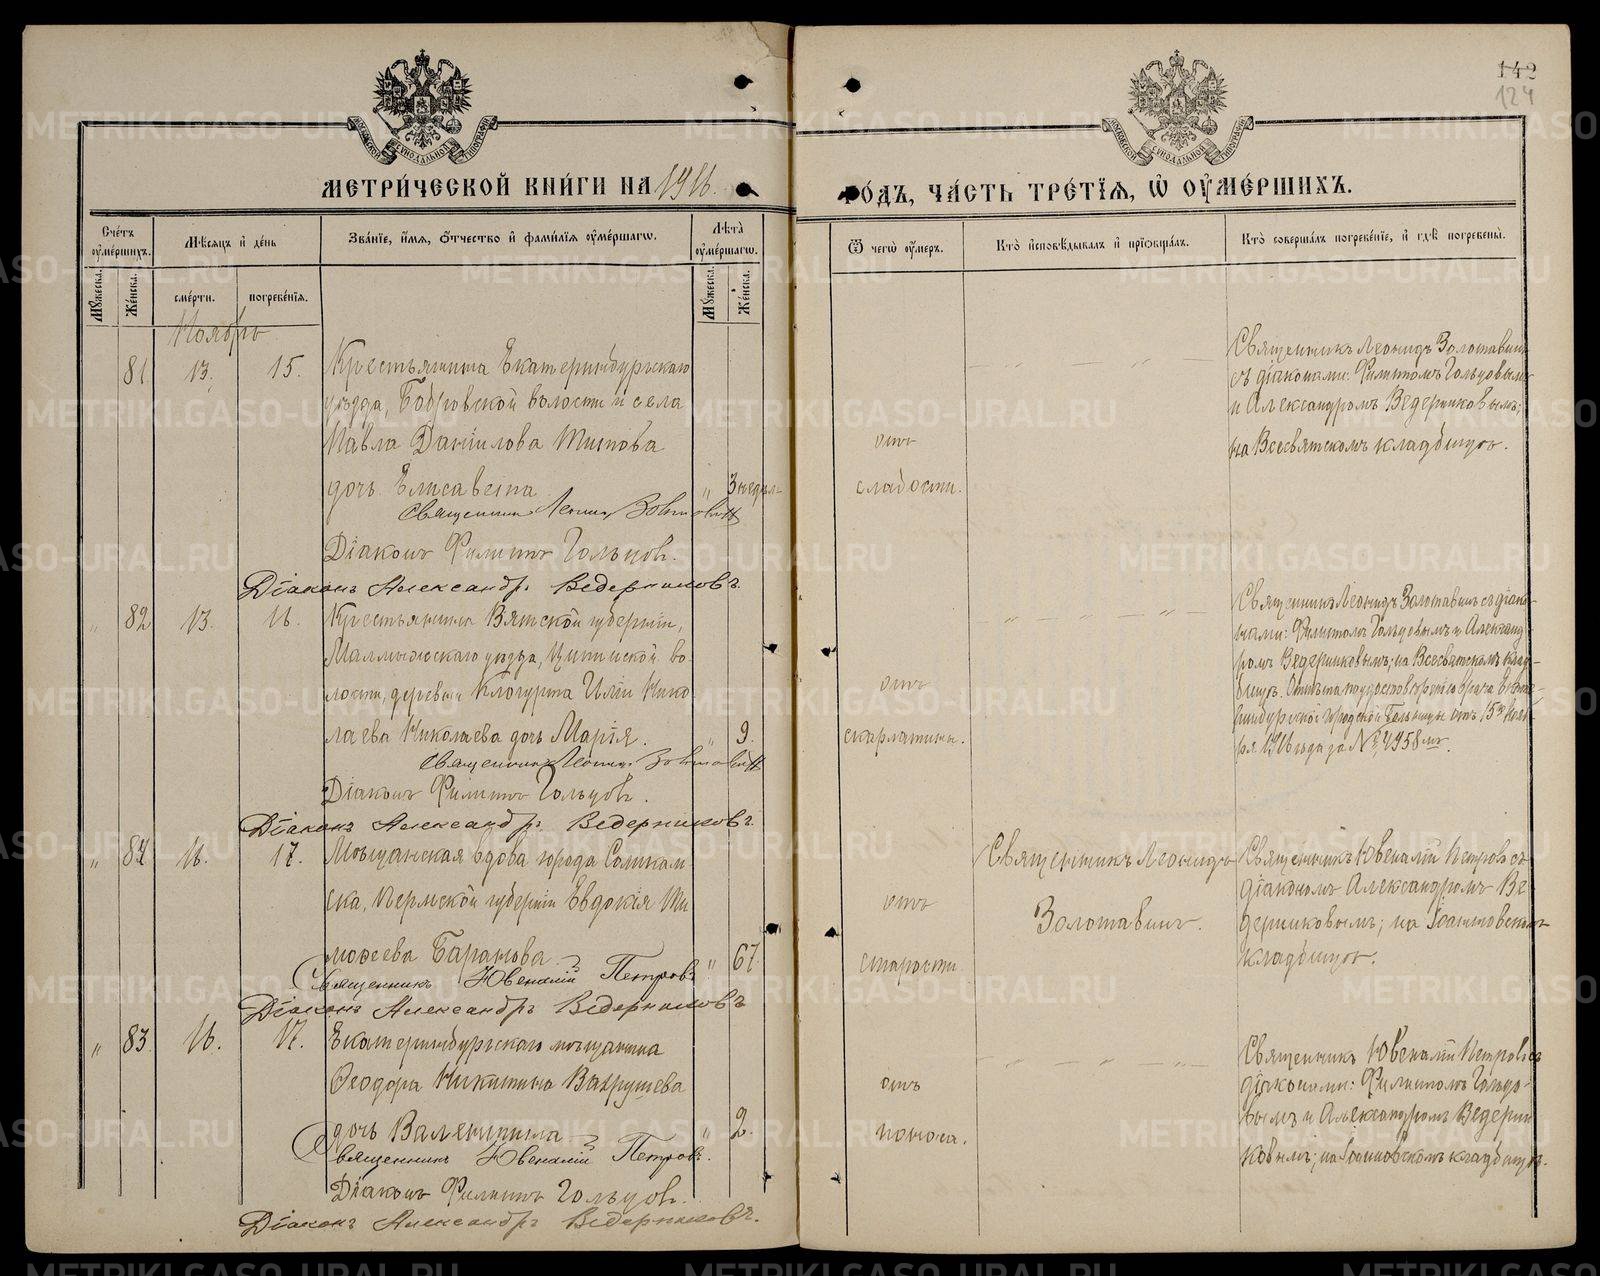 142
124
МЕТРИ́ЧЕСКОЙ КНИ́ГИ НА 1916.
ГО́ДЪ, ЧА́СТЬ ТРЕ́ТЇЯ, Ѡ ОУМЕ́РШИХЪ.
Сче́тъ оуме́ршихъ.
Мѣсяцъ и де́нь
Зва́нїе, и́мя, о́тчество и фами́лїя оуме́ршагѡ.
Лѣта̀ оуме́ршагѡ.
Мꙋжеска.
Же́нска.
сме́рти.
погребе́нїя.
Мꙋжеска.
Же́нска.
Ѿ чегѡ̀ оу́меръ.
Кто̀ и́сповѣдывалъ и прїѡбща́лъ.
Кто̀ соверша́лъ погребе́нїе, и гдѣ̀ погребены̀.
Ноябрь
81 13. 15. Крестьянина Екатеринбургскаго
уѣзда, Бобровской волости и села
Павла Данiилова Титова
дочь Елисавета " 3 недѣл-
Священникъ Леонидъ Золотавинъ
Дiаконъ Филиппъ Гольцовъ.
Дiаконъ Александръ Ведерниковъ.
отъ
слабости.
Священникъ Леонидъ Золотавинъ
съ дiаконами: Филиппомъ Гольцовымъ
и Александромъ Ведерниковымъ;
на Всесвятскомъ кладбищѣ.
" 82 13. 16. Крестьянина Вятской губернiи,
Малмыжскаго уѣзда, во-
лости, деревни Илiи Нико-
лаева Николаева дочь Марiя. " 9.
Священникъ Леонидъ Золотавинъ
Дiаконъ Филиппъ Гольцовъ.
Дiаконъ Александръ Ведерниковъ.
отъ
скарлатины.
Священникъ Леонидъ Золотавинъ съ дiако-
нами: Филиппомъ Гольцовымъ и Александ-
ромъ Ведерниковымъ; на Всесвятскомъ клад-
бищѣ. врача Екате-
ринбургской городской больницы отъ 15го нояб-
ря 1916 года за № 4958мъ.
" 84 16. 17. Мѣщанская вдова города Соликам-
ска, Пермской губернiи Евдокiя Ти-
мофеева Баранова. " 67
Священникъ Ювеналiй Петровъ
Дiаконъ Александръ Ведерниковъ
отъ
старости.
Священникъ Леонидъ
Золотавинъ.
Священникъ Ювеналiй Петровъ съ
дiакономъ Александромъ Ве-
дерниковымъ; на Iоанновскомъ
кладбищѣ.
" 83 16. 17. Екатеринбургскаго мѣщанина
Ѳеодора Никитина Вахрушева
дочь Валентина " 2.
Священникъ Ювеналiй Петровъ.
Дiаконъ Филиппъ Гольцовъ.
Дiаконъ Александръ Ведерниковъ.
отъ
поноса.
Священникъ Ювеналiй Петровъ съ
дiаконами: Филиппомъ Гольцо-
вымъ и Александромъ Ведерни-
ковымъ; на Iоанновскомъ кладбищѣ.
METRIKI.GASO-URAL.RU